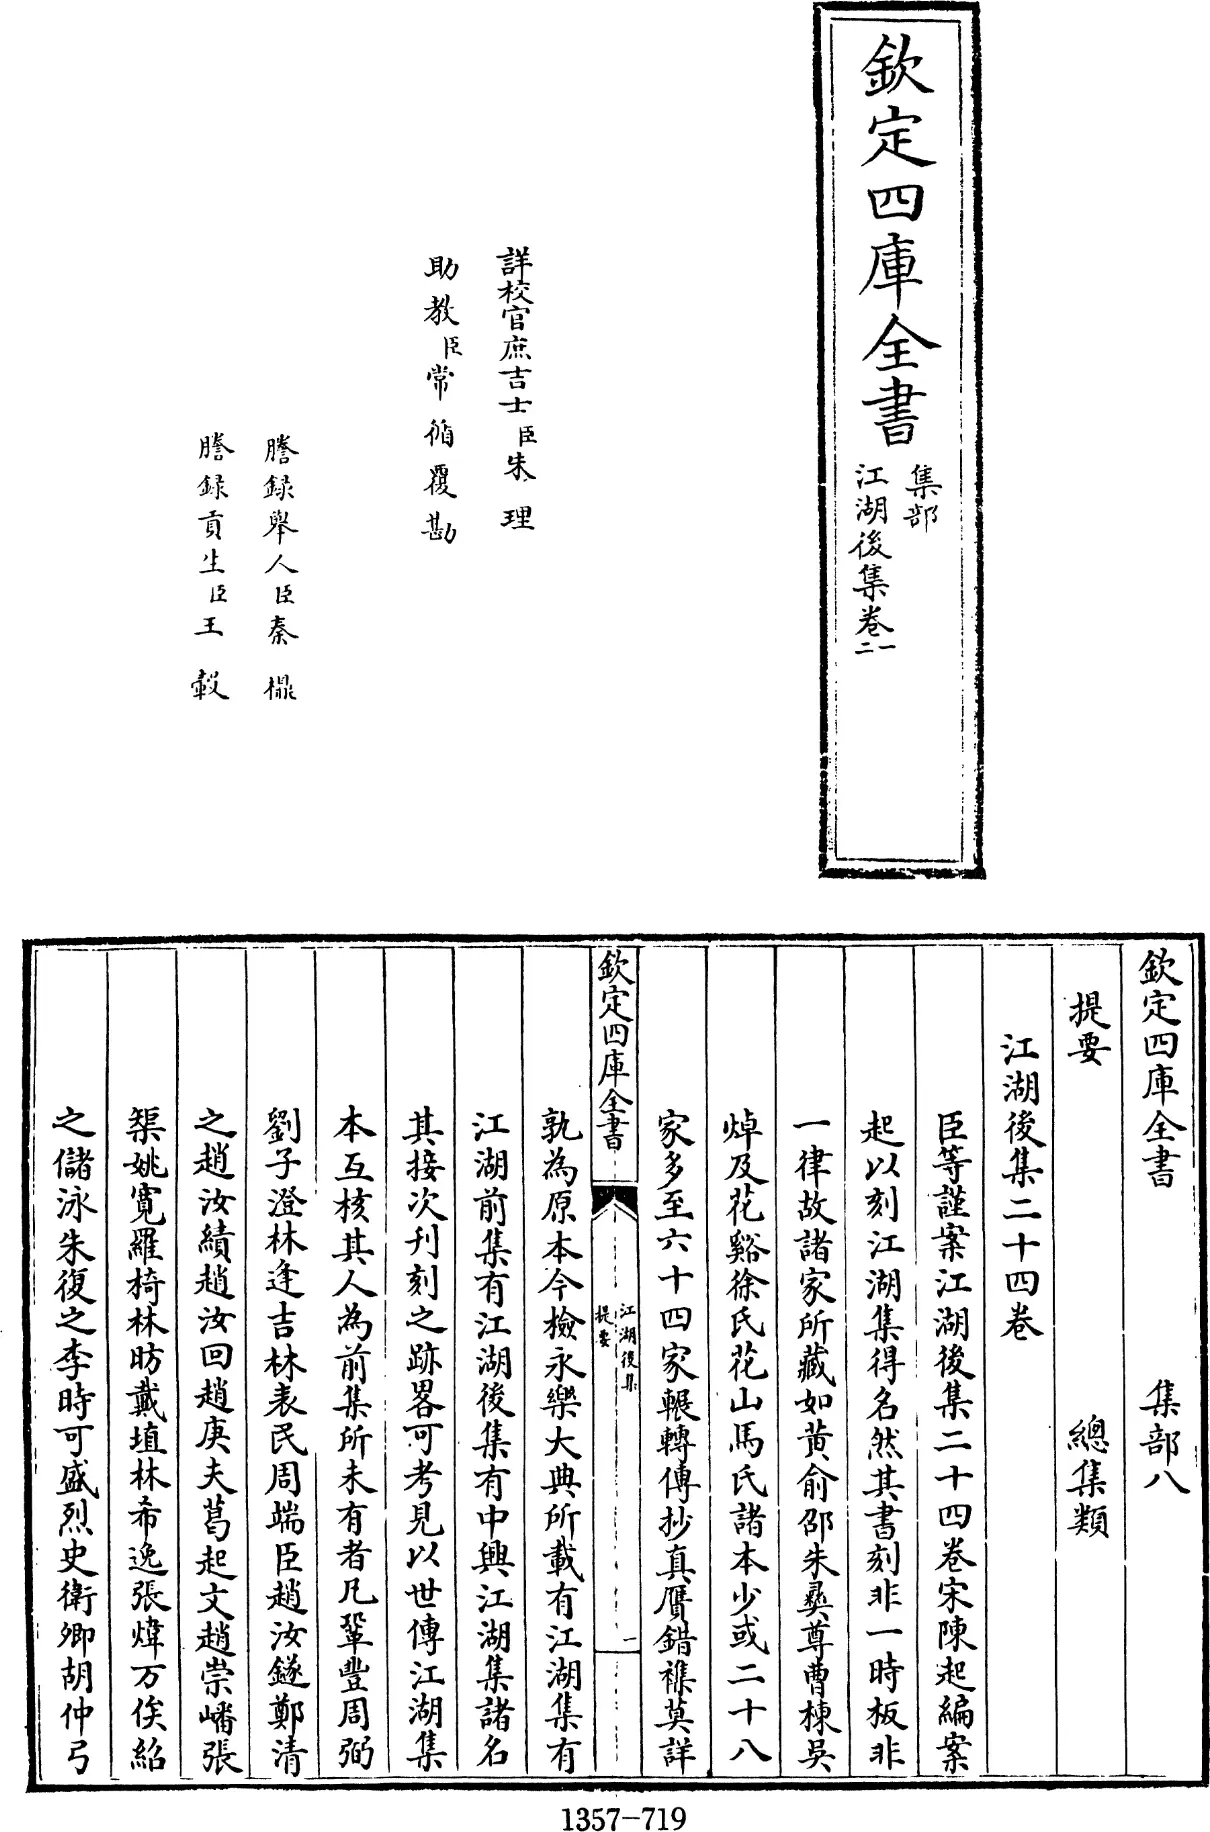 欽定四庫全書
集部
江湖後集卷一
二
詳校官庶吉士臣朱理
助教臣常循覆勘
謄録舉人臣秦櫆
謄録貢生臣王瑴
欽定四庫全書 集部八
提要 總集類
江湖後集二十四卷
臣等謹案江湖後集二十四卷宋陳起編案
起以刻江湖集得名然其書刻非一時板非
一律故諸家所藏如黄俞邵朱彝尊曹棟吳
焯及花谿徐氏花山馬氏諸本少或二十八
家多至六十四家輾轉傳抄真贋錯襍莫詳
欽定四庫全書
江湖後集
提要
一
孰為原本今檢永樂大典所載有江湖集有
江湖前集有江湖後集有中興江湖集諸名
其接次刋刻之跡畧可考見以世傳江湖集
本互核其人為前集所未有者凡鞏豐周弼
劉子澄林逢吉林表民周端臣趙汝鐩鄭清
之趙汝績趙汝回趙庚夫葛起文趙崇嶓張
榘姚寛羅椅林昉戴埴林希逸張煒万俟紹
之儲泳朱復之李時可盛烈史衛卿胡仲弓
1357-719